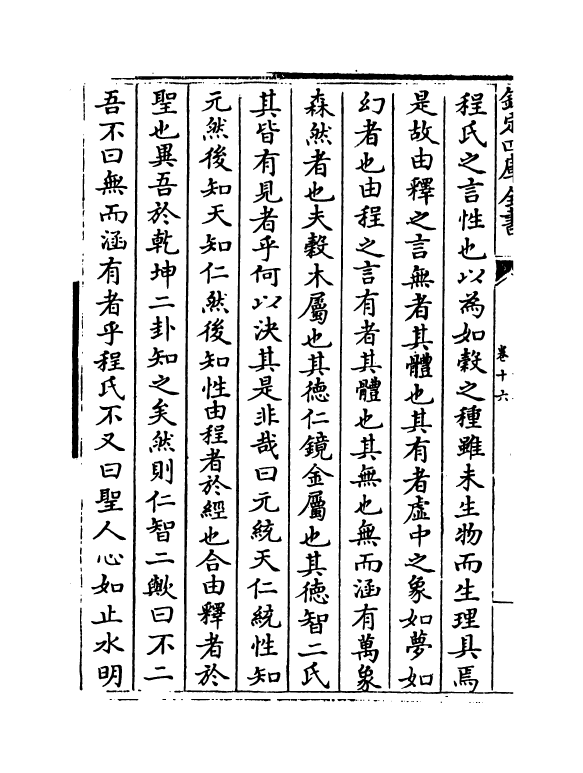 欽定四庫全書
卷十六
程氏之言性也以為如穀之種雖未生物而生理具焉
是故由釋之言無者其體也其有者虛中之象如夢如
幻者也由程之言有者其體也其無也無而涵有萬象
森然者也夫穀木屬也其德仁鏡金屬也其德智二氏
其皆有見者乎何以決其是非哉曰元統天仁統性知
元然後知天知仁然後知性由程者於經也合由釋者於
聖也異吾於乾坤二卦知之矣然則仁智二歟曰不二
吾不曰無而涵有者乎程氏不又曰聖人心如止水明